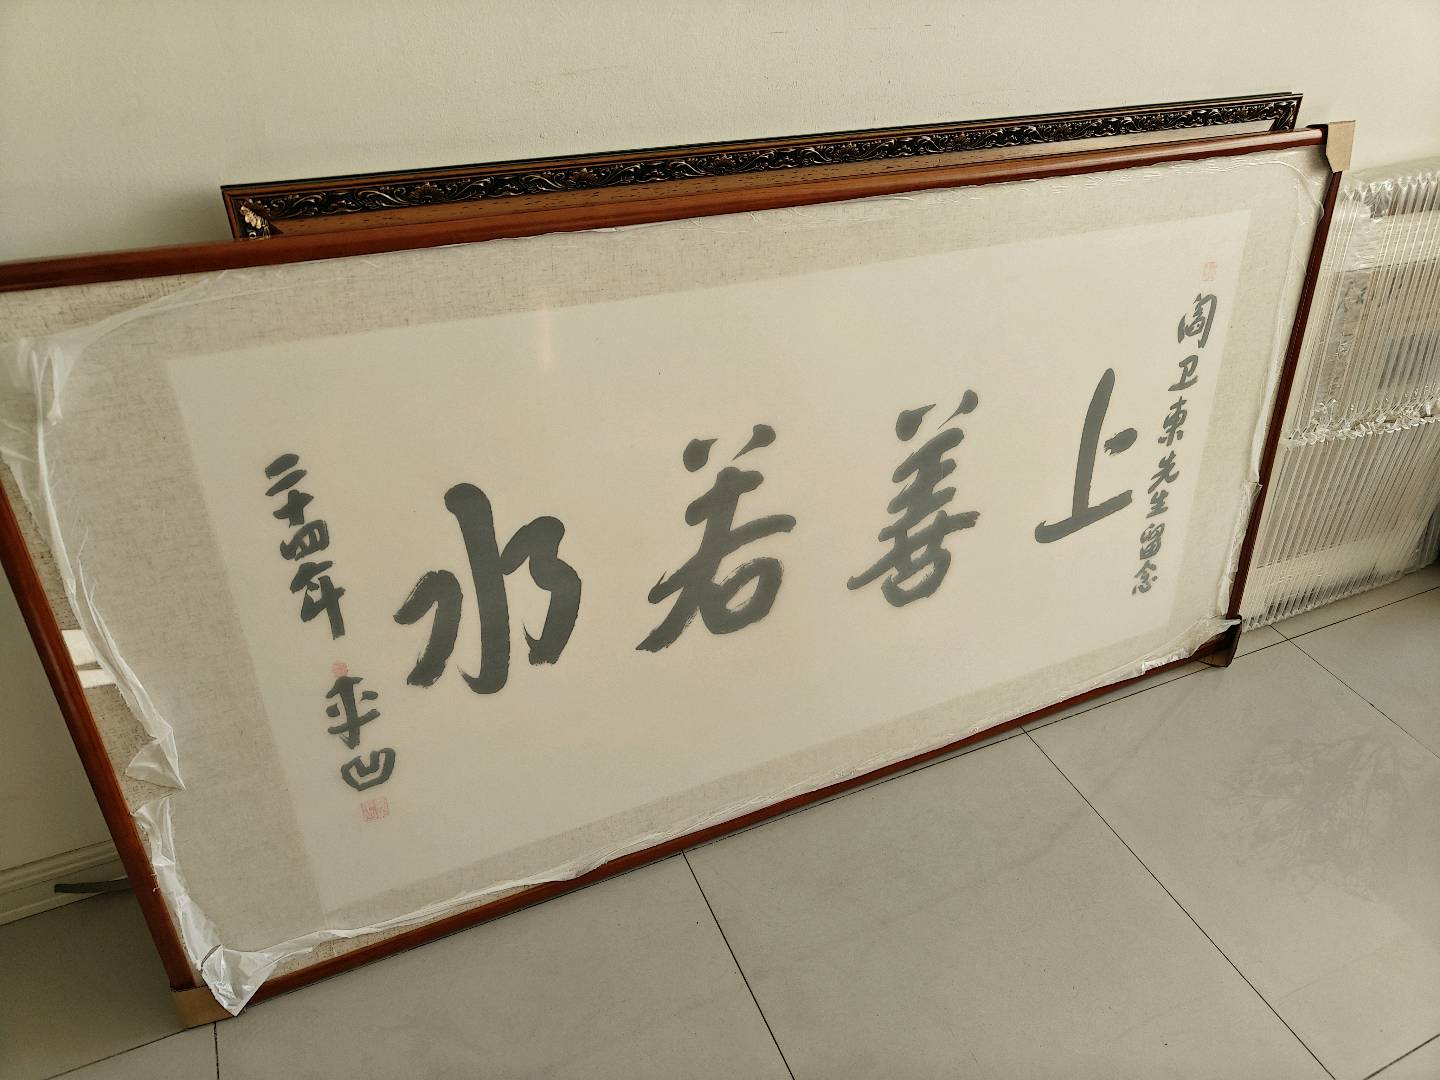 阎卫东先生留念
上善若水
二十四年
平凹